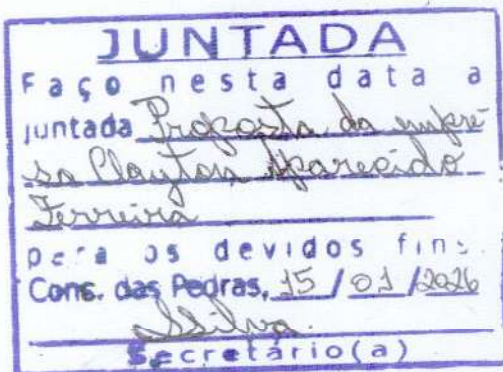 JUNTADA
Faço nesta data a
juntada Proposta da empre
sa Clayton Aparecido
Ferreira
para os devidos fins.
Cons. das Pedras, 15 / 01 / 2026
SSilva.
Secretário(a)